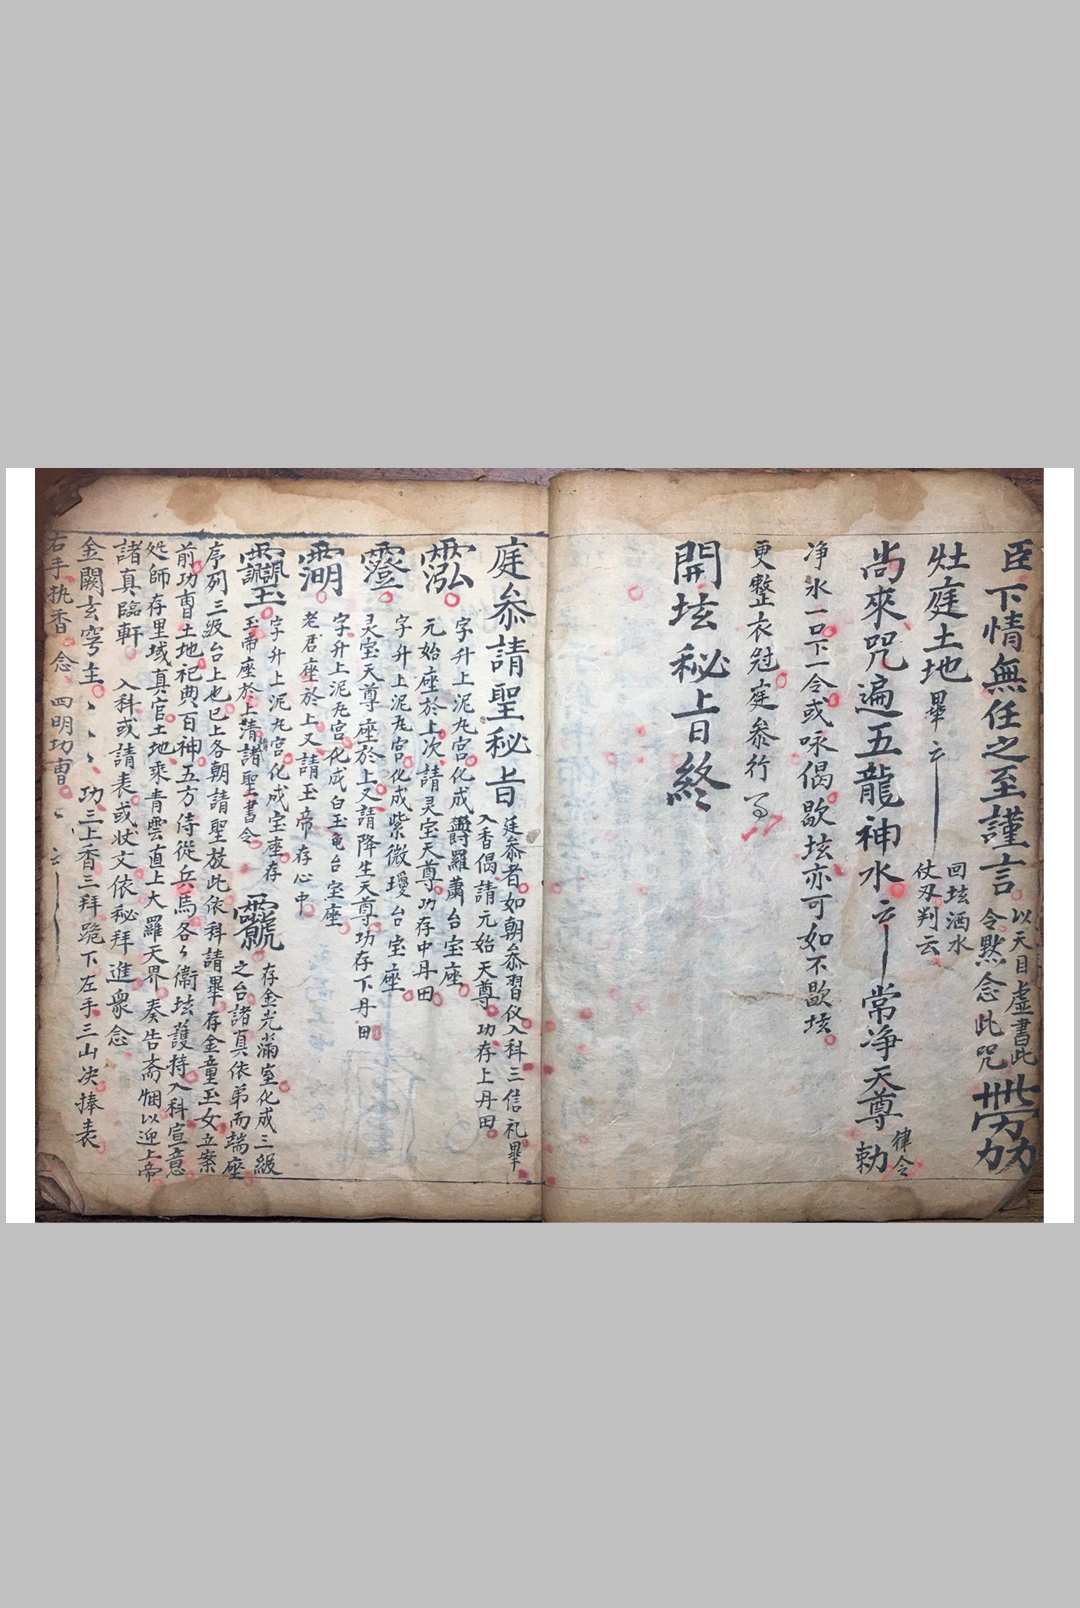 臣下情無任之至謹言
以天目虛書此
令黙念此咒
灶庭土地畢云
回坛洒水
仗刃判云
尚來咒遍五龍神水云常净天尊
律令
勅
净水一口下一令或咏偈歇坛亦可如不歇坛
更整衣冠庭叅行
開坛秘旨終
庭叅請聖秘旨
廷叅者如朝叅習仪入科三信礼畢
入香偈請元始天尊功存上丹田
字升上泥丸宫化成欝羅蕭台宝座
元始座於上次請灵宝天尊功存中丹田
字升上泥丸宫化成紫微璎台宝座
灵宝天尊座於上又請降生天尊功存下丹田
字升上泥丸宫化成白玉龟台宝座
老君座於上又請玉帝存心中
字升上泥丸宫化成宝座存
玉帝座於上請諸聖書令
存金光滿室化成三級
之台諸真依弟而端座
序列三級台上也已上各朝請聖放此依科請畢存金童玉女立案
前功曺土地祀典百神五方侍從兵馬各々衛坛護持入科宣意
処師存里域真官土地乘青雲直上大羅天界奏告斋烟以迎上帝
諸真臨軒入科或請表或状文依秘拜進衆念
金闕玄穹主功三上香三拜跪下左手三山决捧表
右手执香念四明功曺云